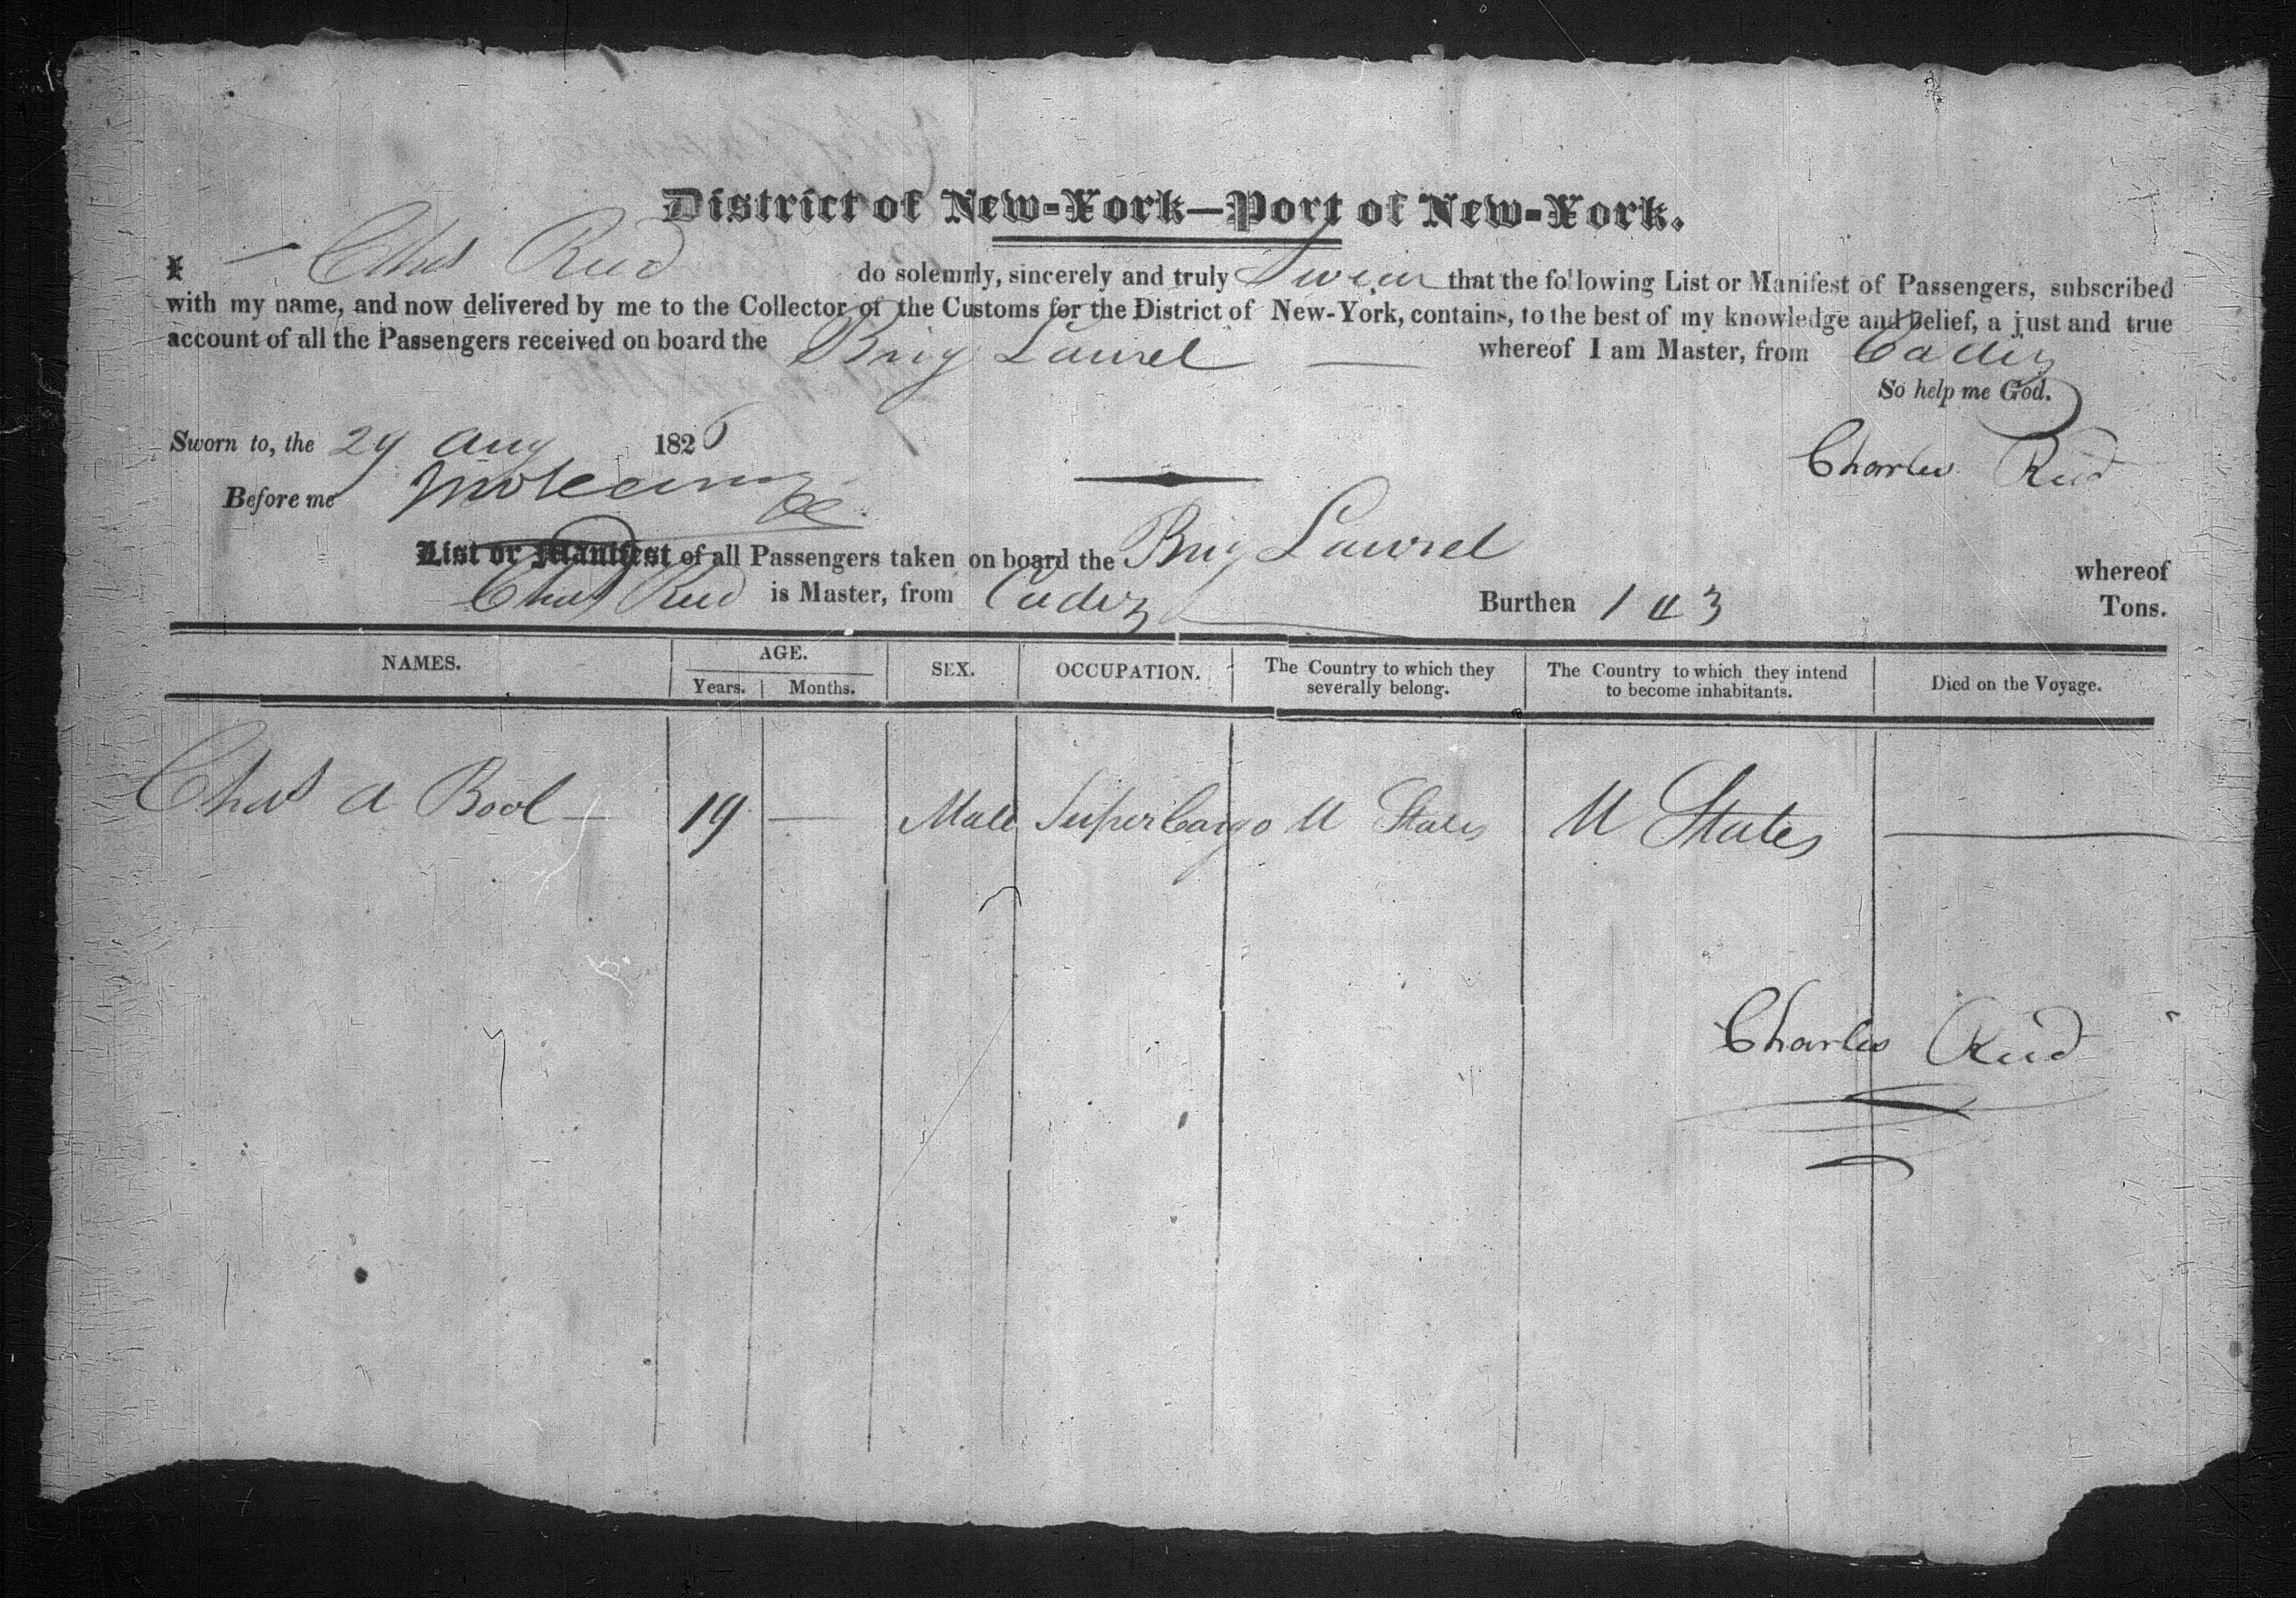 District of New-York—Port of New-York.
I — Chas Reed do solemnly, sincerely and truly Swear that the following List or Manifest of Passengers, subscribed
with my name, and now delivered by me to the Collector of the Customs for the District of New-York, contains, to the best of my knowledge and belief, a just and true
account of all the Passengers received on board the Brig Laurel — whereof I am Master, from Cadiz
So help me God.
Sworn to, the 29 Aug 1826 Charles Reed
Before me
List or Manifest of all Passengers taken on board the Brig Laurel whereof
Chas Reed is Master, from Cadiz Burthen 143 Tons.
NAMES. AGE. SEX. OCCUPATION. The Country to which they severally belong. The Country to which they intend to become inhabitants. Died on the Voyage.
Years. Months.
Chas A Bool — 19 — Male SuperCargo U States U States —
Charles Reed